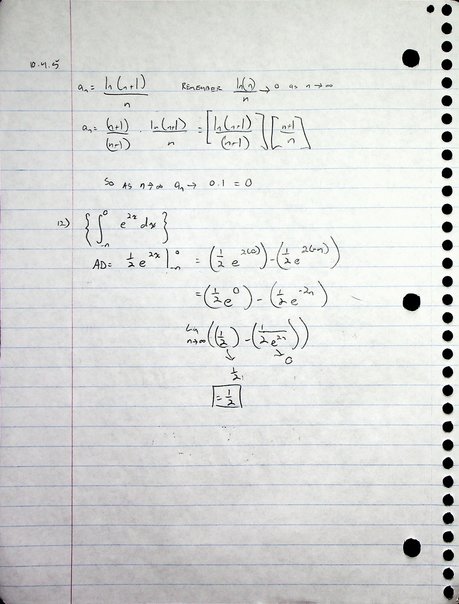 10.4.5
aₙ = ln(n+1)/n REMEMBER ln(n)/n → 0 as n→∞
aₙ = (n+1)/(n+1) · ln(n+1)/n = [ln(n+1)/(n+1)] [n+1/n]
So as n→∞ aₙ → 0.1 = 0
12) { ∫₋ₙ⁰ e^2x dx }
AD = 1/2 e^2x |₋ₙ⁰ = (1/2 e^2(0)) - (1/2 e^2(-n))
= (1/2 e^0) - (1/2 e^-2n)
lim n→∞ ((1/2) - (1/2e^2n))
↓ ↘
1/2 0
= 1/2